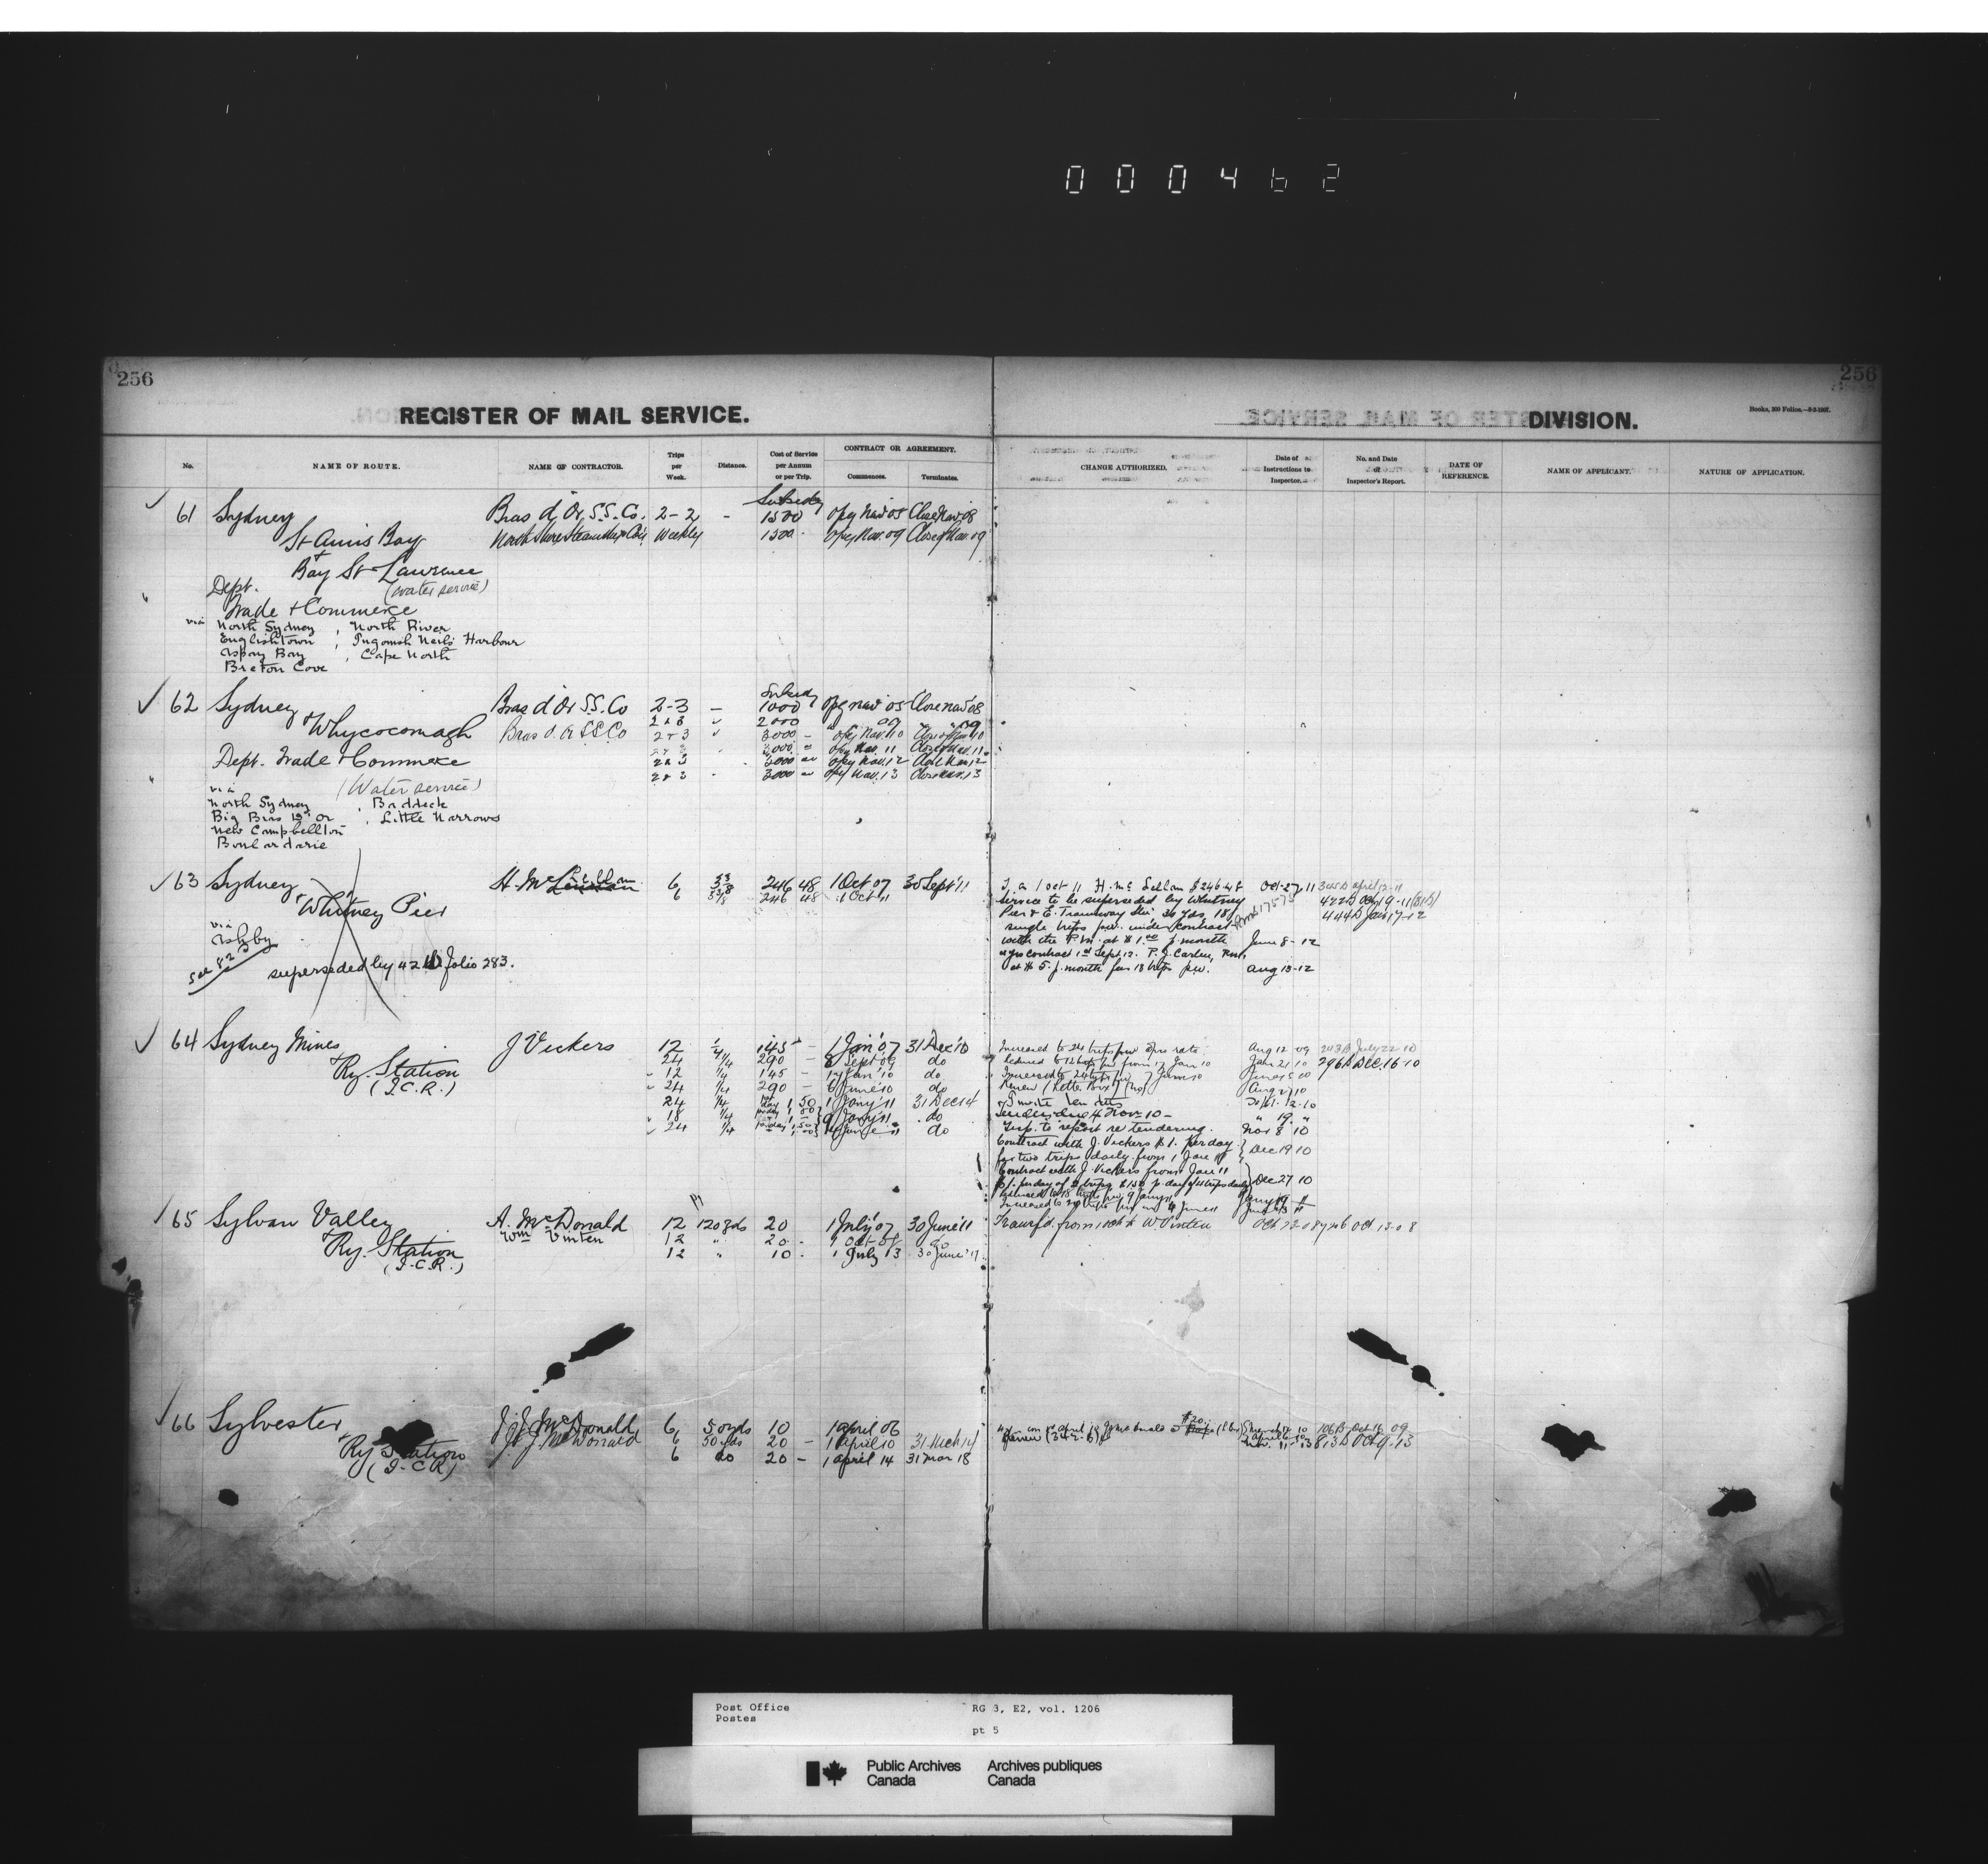 000462
256
256
REGISTER OF MAIL SERVICE.
DIVISION.
Books, 300 Folios.—8-2-1907.
No.
NAME OF ROUTE.
NAME OF CONTRACTOR.
Trips per Week.
Distance.
Cost of Service per Annum or per Trip.
CONTRACT OR AGREEMENT.
Commences.
Terminates.
CHANGE AUTHORIZED.
Date of Instructions to Inspector.
No. and Date of Inspector's Report.
DATE OF REFERENCE.
NAME OF APPLICANT.
NATURE OF APPLICATION.
Subsidy
61 Sydney Bras d'Or S.S. Co. 2-2 - 1500 opg Nav 08 Close Nav 08
St Anns Bay North Shore Steamship Co Weekly 1500 opg Nav. 09 Close of Nav. 09
+ Bay St Lawrence
Dept. (water service)
Trade + Commerce
via North Sydney, North River
Englishtown, Ingonish Neils Harbour
Aspay Bay, Cape North
Breton Cove
Subsidy
62 Sydney Bras d'Or S.S. Co 2-3 - 1000 opg nav 08 Close nav 08
+ Whycocomagh 2 & 3 " 2000 " 09 " 09
Bras d'Or S.S. Co 2 + 3 " 3000 - opg Nav. 10 Close of Nav 10
2 & 3 3000 opg Nav. 11 Close of Nav. 11
Dept. Trade + Commerce 2 & 3 3000 opg Nav. 12 Close Nav 12
2 & 3 3000 opg Nav. 13 Close Nav. 13
(Water service)
via
North Sydney, Baddeck
Big Bras d'or, Little Narrows
New Campbellton
Boulardarie
63 Sydney H. McLellan 6 246 48 1 Oct 07 30 Sept '11
+ Whitney Pier 6 246 48 1 Oct 11
via
Ashby
See 82
superseded by 42 folio 283.
T. a 1 oct 11 H. Mc Lellan $246.48 Oct-27 11
Service to be superseded by Whitney
Pier & E. Tramway Stn, 30 yds, 18
single trips p.w. under contract 444 B Jan 17-12
with the P.M. at $1.00 p. month June 8-12
contract 1st Sept. 12. P.J.
at $5. p. month for 18 trips p.w. Aug 13-12
64 Sydney Mines J Vickers 12 1/4 145 - 1 Jan '07 31 Dec '10
+ Ry. Station 24 1/4 290 - 8 Sept 09 do
(I.C.R.) 12 1/4 145 - Jan '10 do
24 1/4 290 - 6 June '10 do
24 1/4 1 50 1 Jany '11 31 Dec 14
18 1/4 9 Jany '11 do
24 1/4 June 11 do
Increased to 24 trips p.w. rate Aug 12 09 243 B July 22 10
Reduced to 12 trips p.w. from 17 Jan 10 Jan 21 10 296 B Dec. 16-10
Increased to 24 trips p.w.
Renew
Invite tenders
Tenders due 4 Nov 10 -
Insp. to report re tendering. Nov 8 10
Contract with J. Vickers $1. per day
for two trips daily from 1 Jan 11 Dec 19 10
Contract with J. Vickers from Jan 11
Dec 27 10
65 Sylvan Valley A. McDonald 12 120 yds 20 1 July '07 30 June '11
+ Ry. Station Wm Vinten 12 " 20 - 1 Oct 08 do
(I.C.R.) 12 " 10 - 1 July 13 30 June '17
Transfd. from 1 Oct to W Vinten Oct 22 08
66 Sylvester J. J. McDonald 6 50 yds 10 1 april 06
+ Ry Station J. J. McDonald 6 50 yds 20 - 1 April 10 31 Mch 14
(I.C.R.) 6 do 20 - 1 april 14 31 Mar 18
106 B Oct 16 09
813 B Oct 9-13
Post Office
Postes
RG 3, E2, vol. 1206
pt 5
Public Archives Canada
Archives publiques Canada